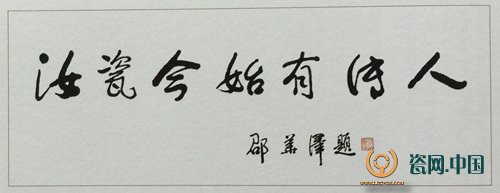 汝瓷今始有传人
邵华泽题
瓷网.中国